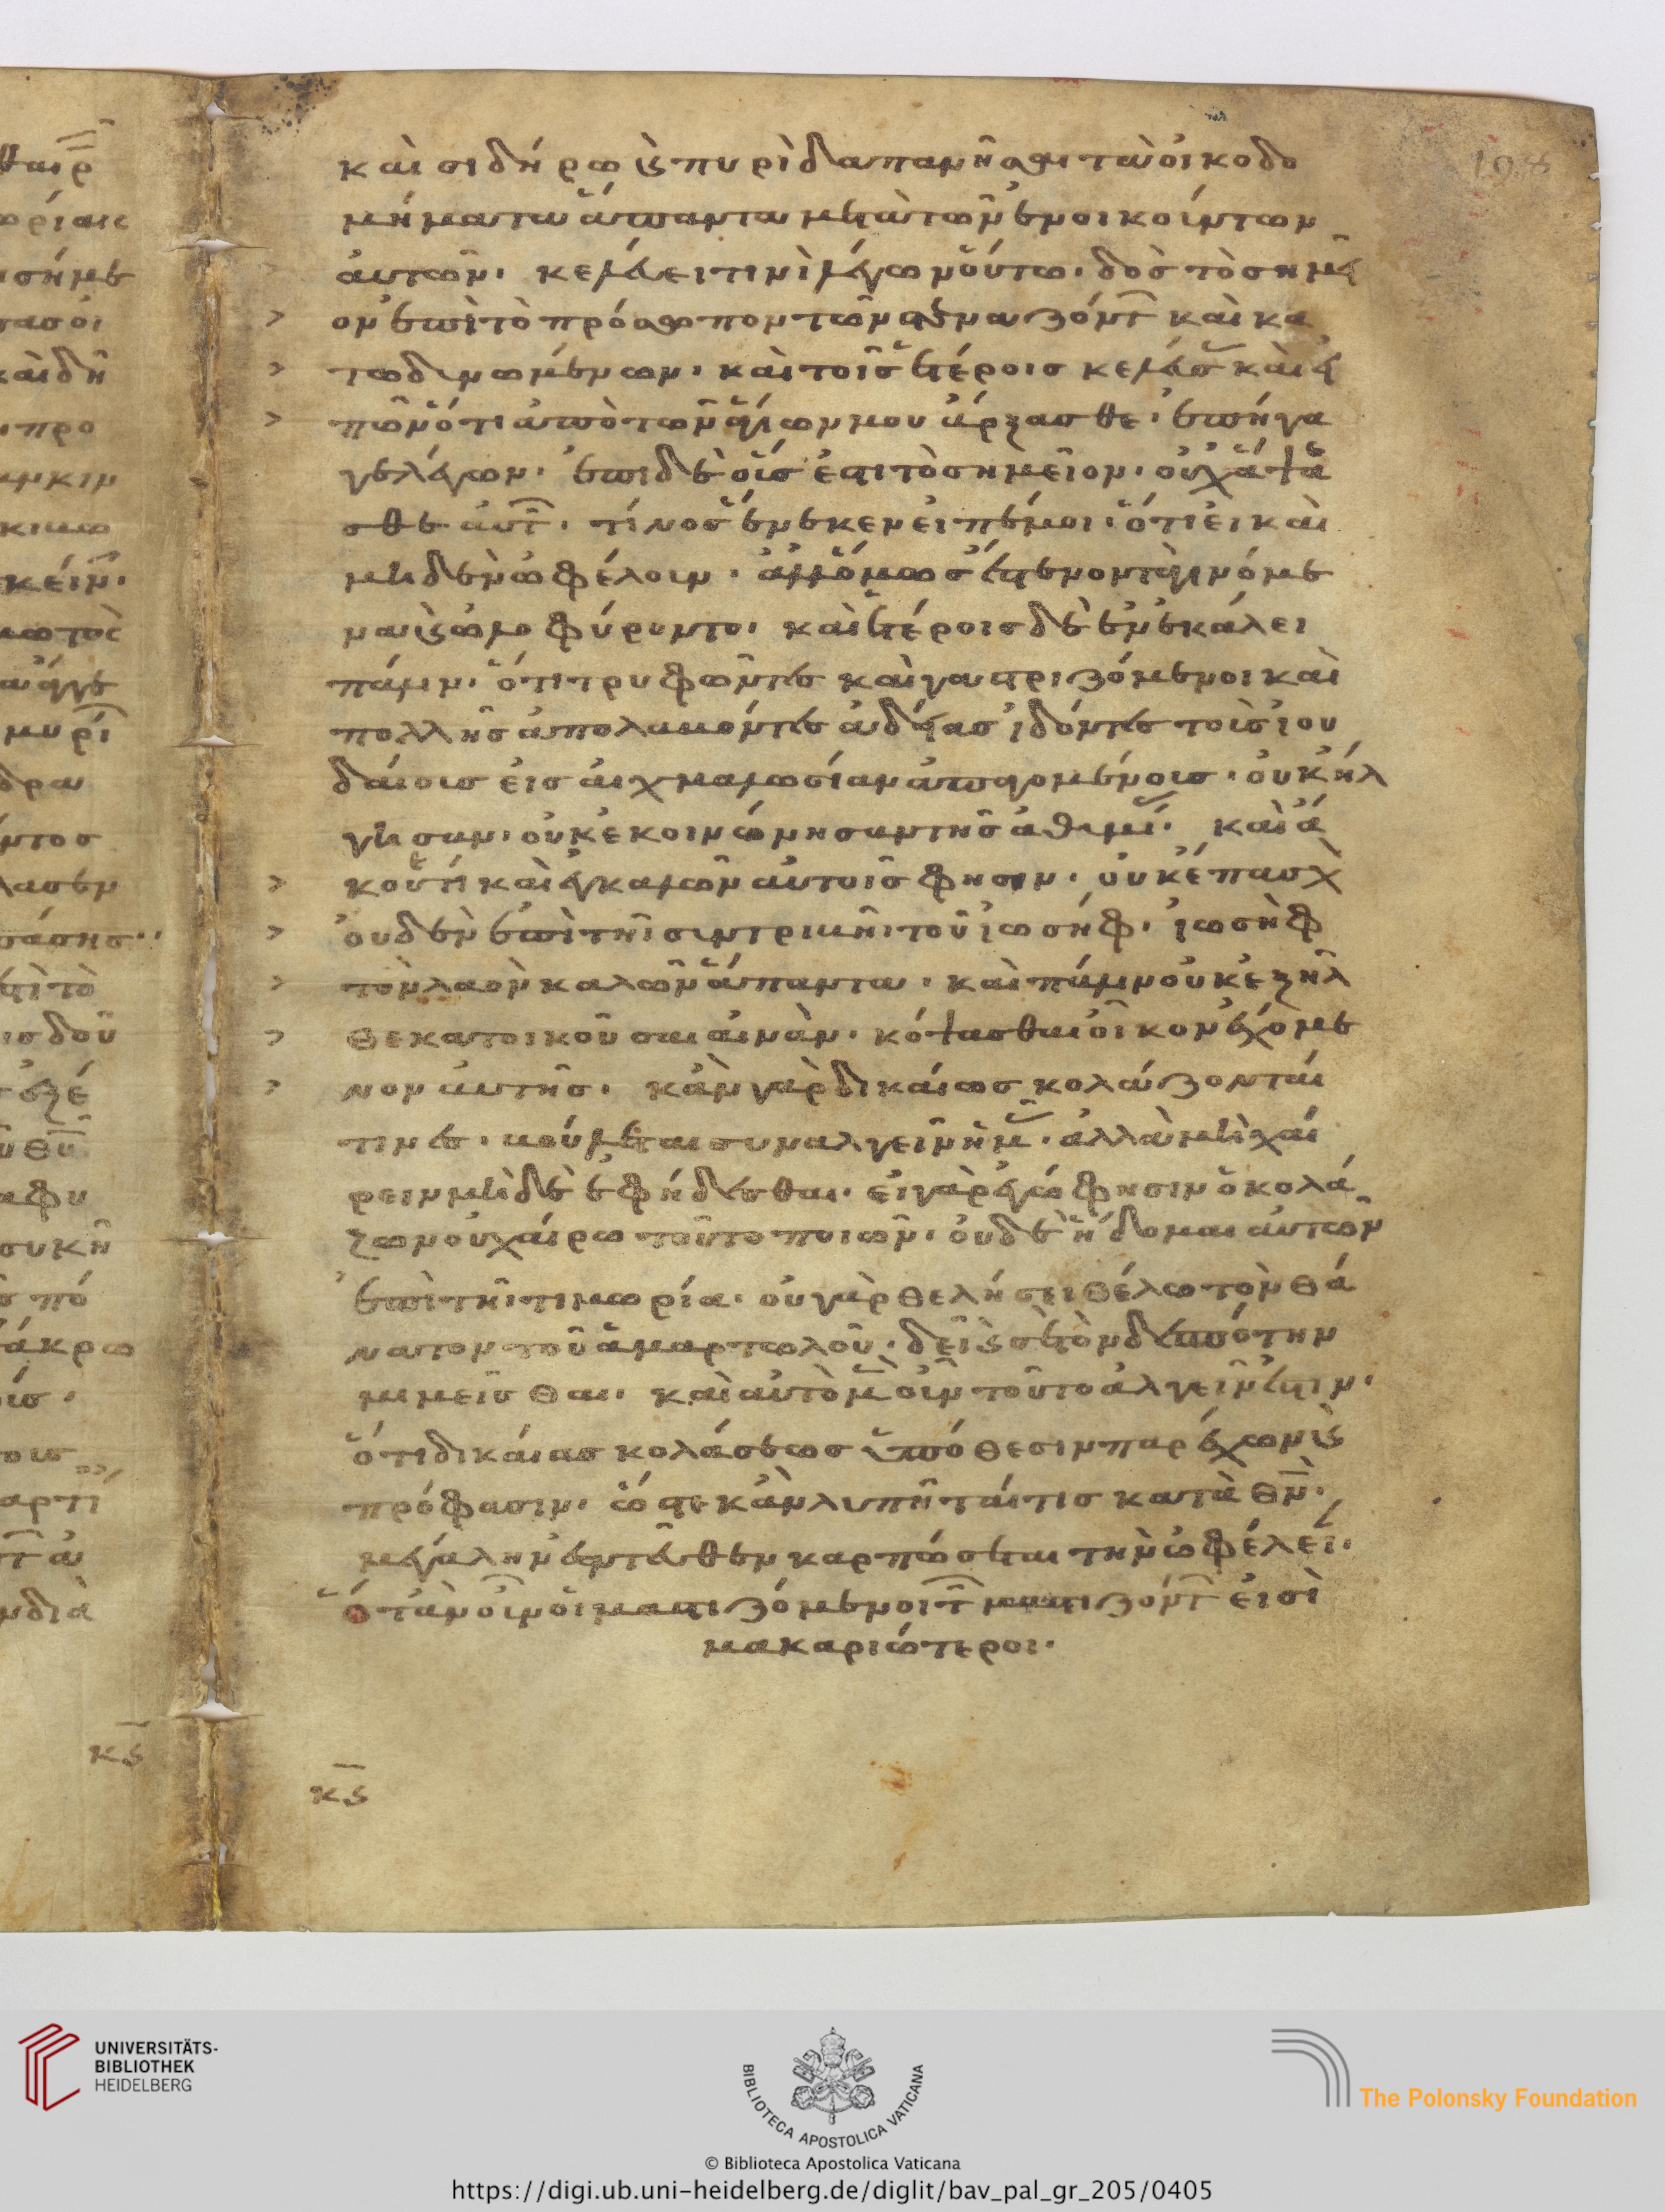 καὶ σιδήρω καὶ πυρὶ δαπανῆσαι τὰ οἰκοδο
μήματα ἅπαντα μετὰ τῶν ἐνοικούντων
αὐτῶν. κελεύει τινὶ λέγων οὕτω. δὸς τὸ σημεῖ
ον ἐπὶ τὸ πρόσωπον τῶν στεναζόντ καὶ κα
τωδυνωμένων. καὶ τοῖς ἑτέροις κελεύσας καὶ εἰ
πὼν ὅτι ἀπὸ τῶν ἁγίων μου ἄρξασθε. ἐπήγα
γε λέγων. ἐπὶ δὲ οἷς ἐστι τὸ σημεῖον. οὐχ ἅψε
σθε αὐτ. τίνος ἕνεκεν εἰπέ μοι. ὅτι εἰ καὶ
μηδὲν ὠφέλουν. ἀλλ' ὅμως ἔστενον τὰ γινόμε
να καὶ ὠλοφύροντο. καὶ ἑτέροις δὲ ἐνεκάλει
πάλιν. ὅτι τρυφῶντες καὶ γαστριζόμενοι καὶ
πολλῆς ἀπολαύοντες ἀδείας ἰδόντες τοὺς ἰου
δαίους εἰς αἰχμαλωσίαν ἀπαγομένους. οὐκ ἤλ
γησαν. οὐκ ἐκοινώνησαν τῆς ἀθυμί. καὶ ἄ
κουε τί καὶ ἐγκαλῶν αὐτοῖς φησιν. οὐκ ἔπασχ
οὐδὲν ἐπὶ τῆ συντριβῆ τοῦ ἰωσήφ. ἰωσὴφ
τὸν λαὸν καλῶν ἅπαντα. καὶ πάλιν οὐκ ἐξῆλ
θε κατοικοῦσα αἰνάν. κόψασθαι οἶκον ἐχόμε
νον αὐτῆς. κἂν γὰρ δικαίως κολάζονταί
τινες. βούλεται συναλγεῖν ἡμᾶς. ἀλλὰ μὴ χαί
ρειν μηδὲ ἐφήδεσθαι. εἰ γὰρ ἐγώ φησιν ὁ κολά
ζων οὐ χαίρω τοῦτο ποιῶν. οὐδὲ ἥδομαι αὐτῶν
ἐπὶ τῆ τιμωρία. οὐ γὰρ θελήσει θέλω τὸν θά
νατον τοῦ ἁμαρτωλοῦ. δεῖ καὶ σὲ τὸν δεσπότην
μιμεῖσθαι. καὶ αὐτὸ μὲν οὖν τοῦτο ἀλγεῖν ἐστιν.
ὅτι δικαίας κολάσεως ὑπόθεσιν παρέχων καὶ
πρόφασιν. ὥστε κἂν λυπῆταί τις κατὰ θν.
μεγάλην ἐντεῦθεν καρπώσεται τὴν ὠφέλει.
ὅταν οὖν οἱ μαστιζόμενοι τ μαστιζόντ εἰσὶ
μακαριώτεροι.
κς
κς
UNIVERSITÄTS-
BIBLIOTHEK
HEIDELBERG
BIBLIOTECA APOSTOLICA VATICANA
© Biblioteca Apostolica Vaticana
The Polonsky Foundation
https://digi.ub.uni-heidelberg.de/diglit/bav_pal_gr_205/0405